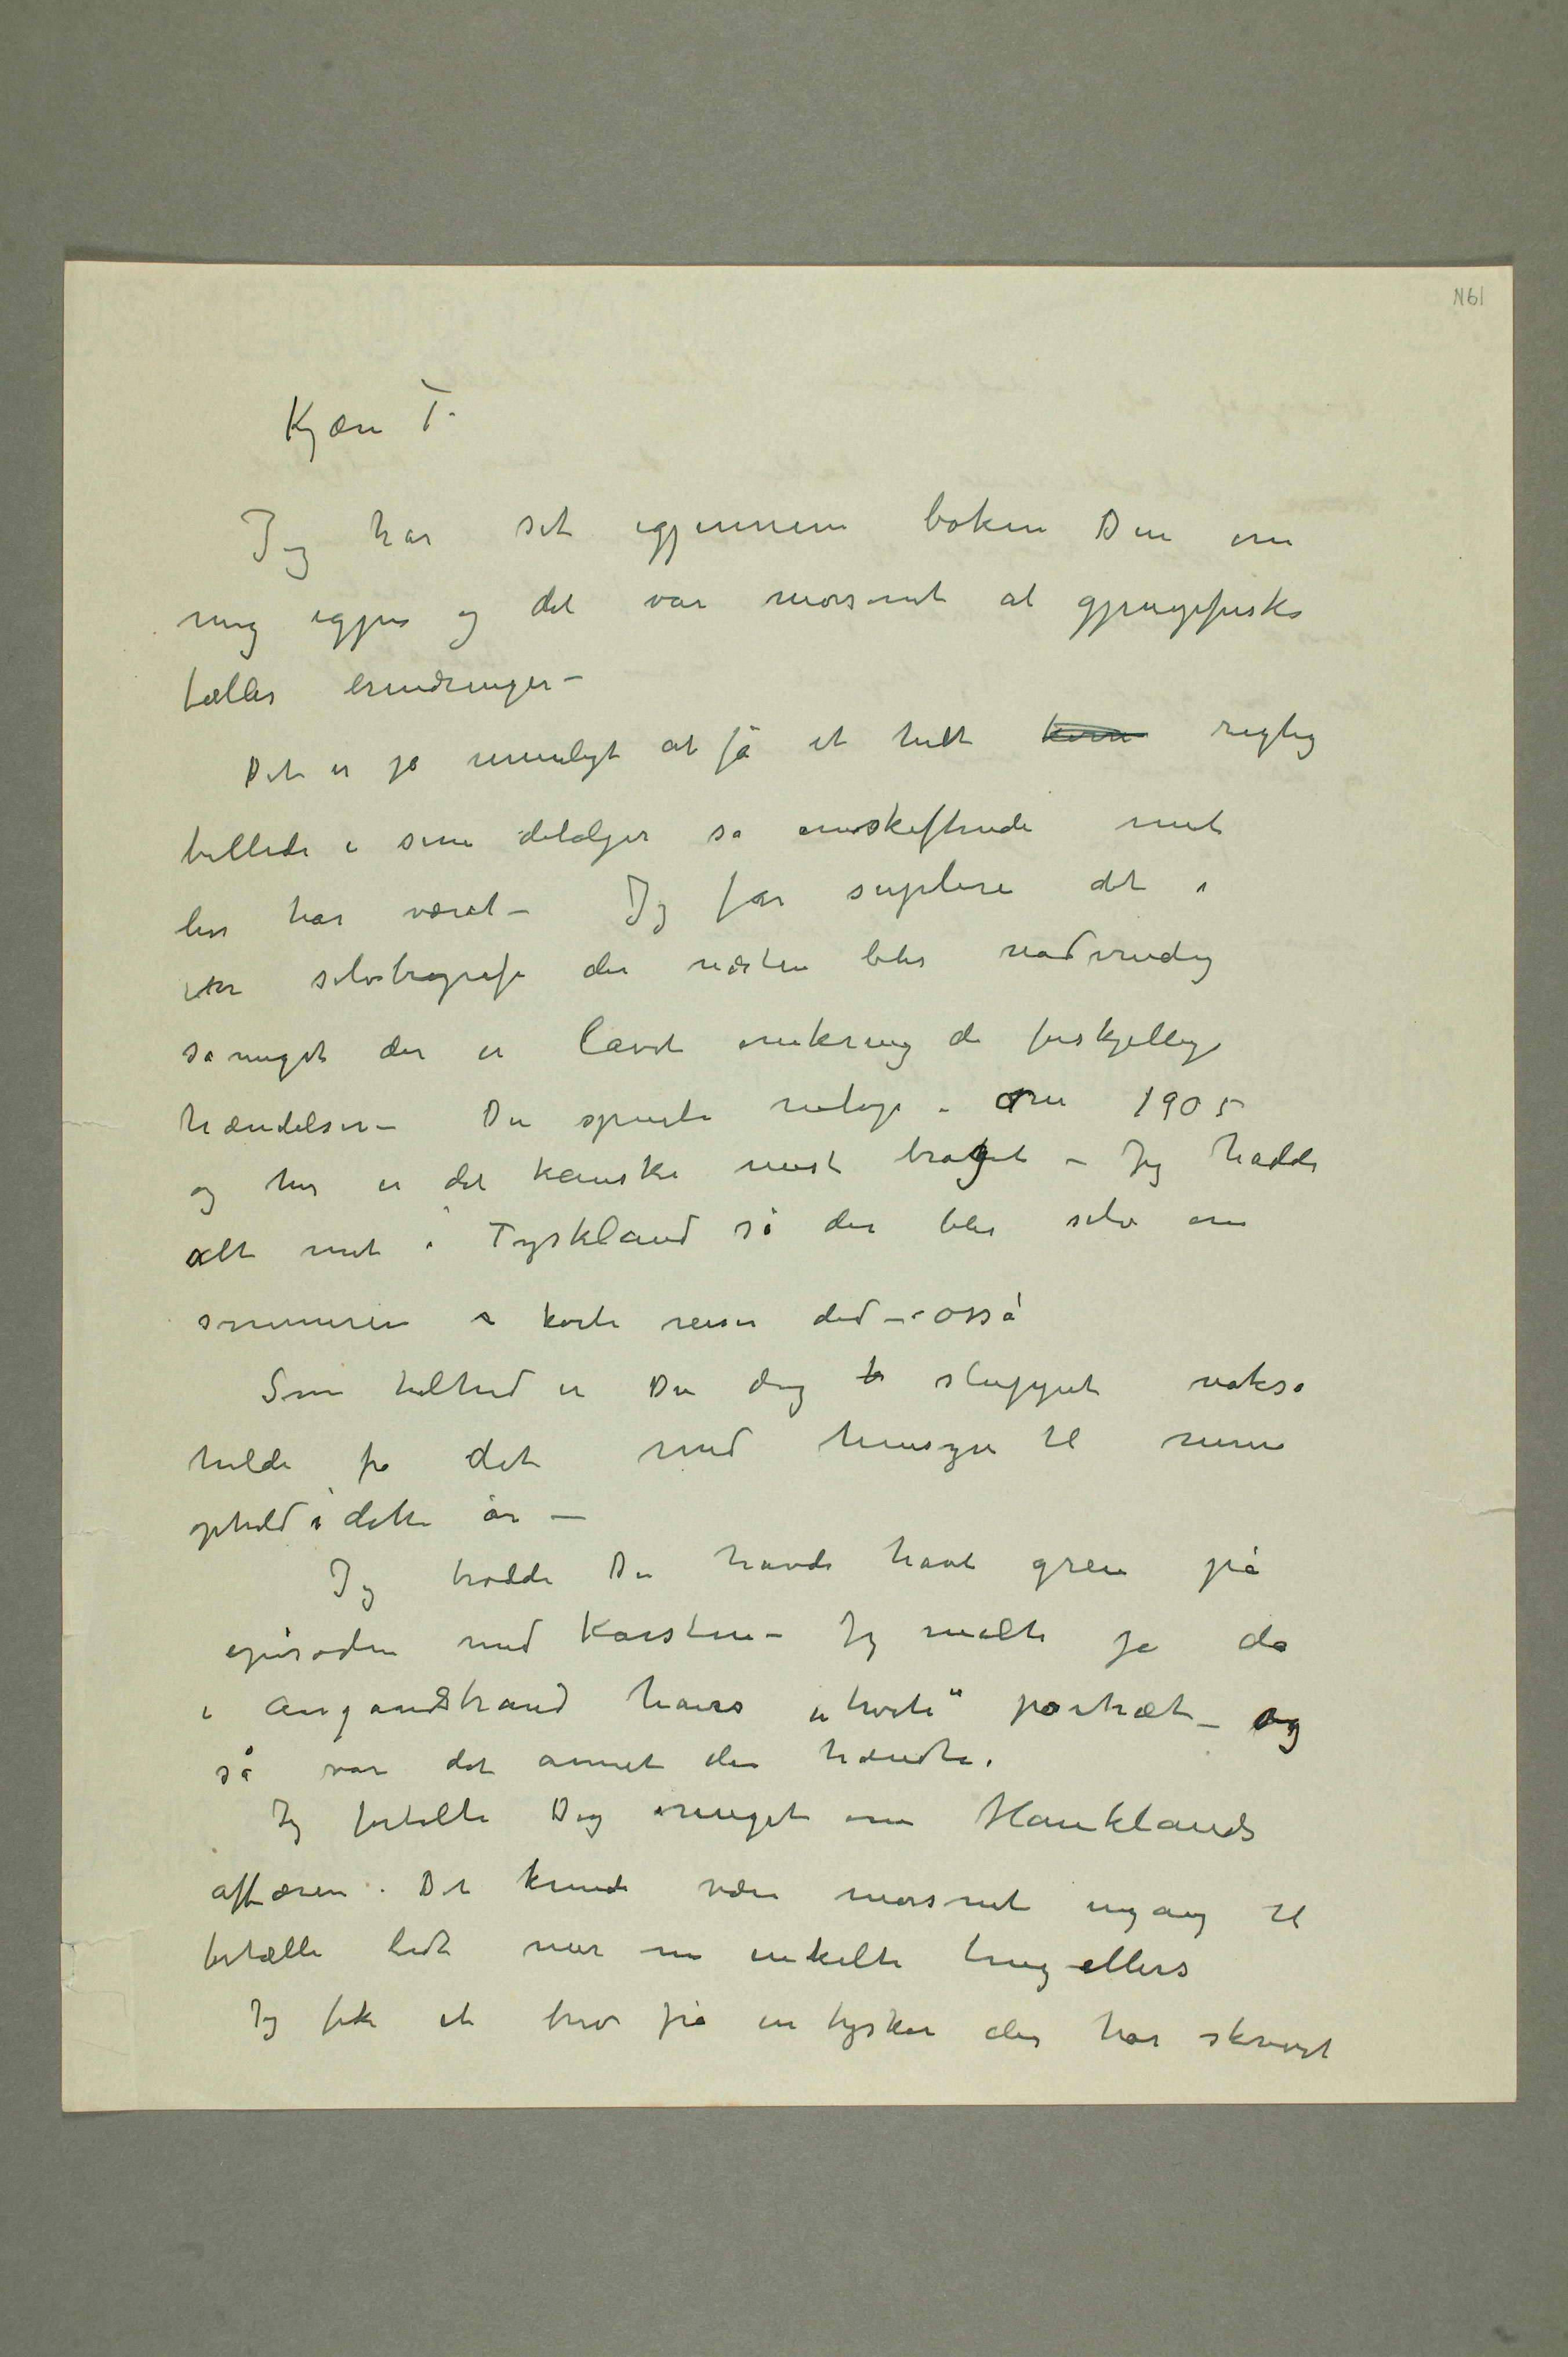 N61
Kjære T.
Jeg har set igjennem boken Din om
mig igjen og det var morsomt at gjenopfriske
fælles erindringer –
Det er jo umuligt at få et helt rigtig
billede i sine detaljer så omskiftende mit
liv har været – Jeg får suplere det i
en selvbiografi der næsten blir nødvendig
så meget der er lavet omkring de forskjellige
hændelser – Du spurte om 1905
og her er det kanske mest broget – Jeg hadde
alt mit i Tyskland så der blev selv om
sommeren korte reiser did – også
Som helhed er Du dog sluppet nokså
heldi fra det med hensyn til mine
ophold i dette år –
Jeg trodde Du havde havt greie på
episoden med Karsten – Jeg malte jo da
i Aasgaardstrand hans „hvite“ portræt – og
så var det annet der hændte.
Jeg fortalte Dig meget om Hauklands
affæren. Det kunde være morsomt engang til
fortælle lidt mer om enkelte ting ellers
Jeg fik et brev fra en tysker der har skrevet